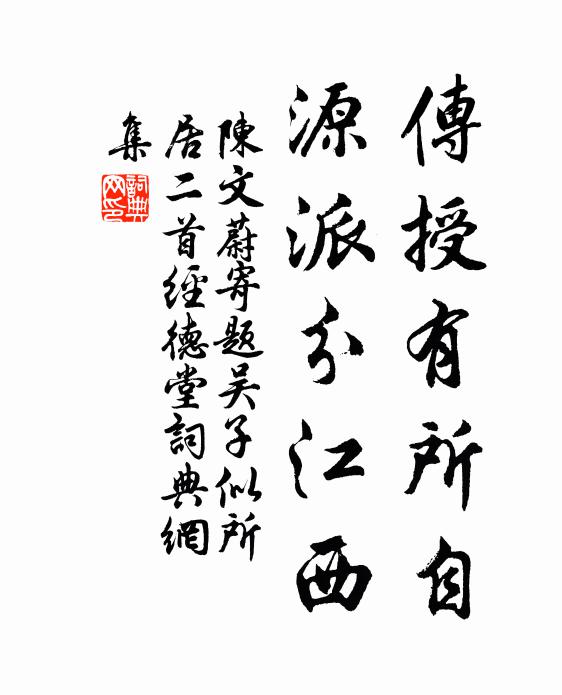 傳授有所自
源派分江西
陳文蔚寄題吴子似所
居二首經德堂詞典網
集
詞典
网印